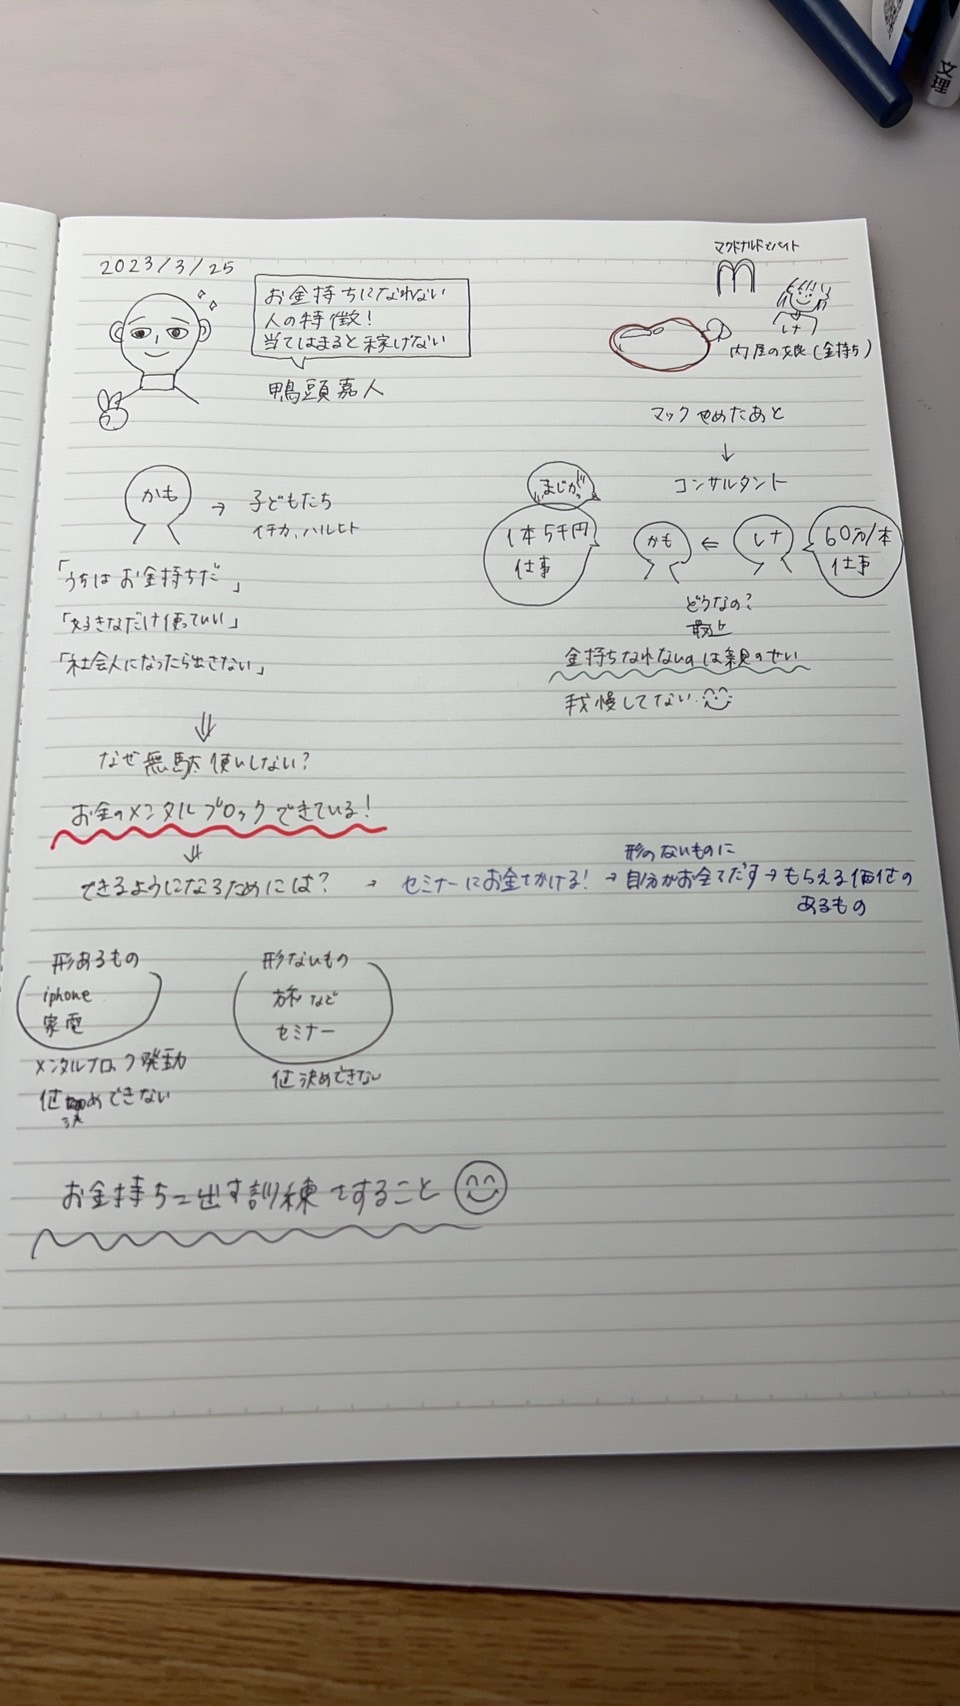 文理
2023/3/25
お金持ちになれない
人の特徴！
当てはまると稼げない
鴨頭嘉人
マクドナルドでバイト
m
レナ
肉屋の娘(金持ち)
マックやめたあと
↓
コンサルタント
かも
→ 子どもたち
イチカ、ハルヒト
「うちはお金持ちだ」
「好きなだけ使っていい」
「社会人になったら出さない」
まじか
1本5千円
仕事
かも
⇐
レナ
60万/本
仕事
どうなの?
最近
金持ちなれないのは親のせい
我慢してない
⇓
なぜ無駄使いしない?
お金のメンタルブロックできている!
⇓
できるようになるためには? → セミナーにお金をかける! → 形のないものに
自分がお金をだす → もらえる価値の
あるもの
形あるもの
iphone
家電
メンタルブロック発動
値決めできない
形ないもの
旅など
セミナー
値決めできない
お金持ち=出す訓練をすること